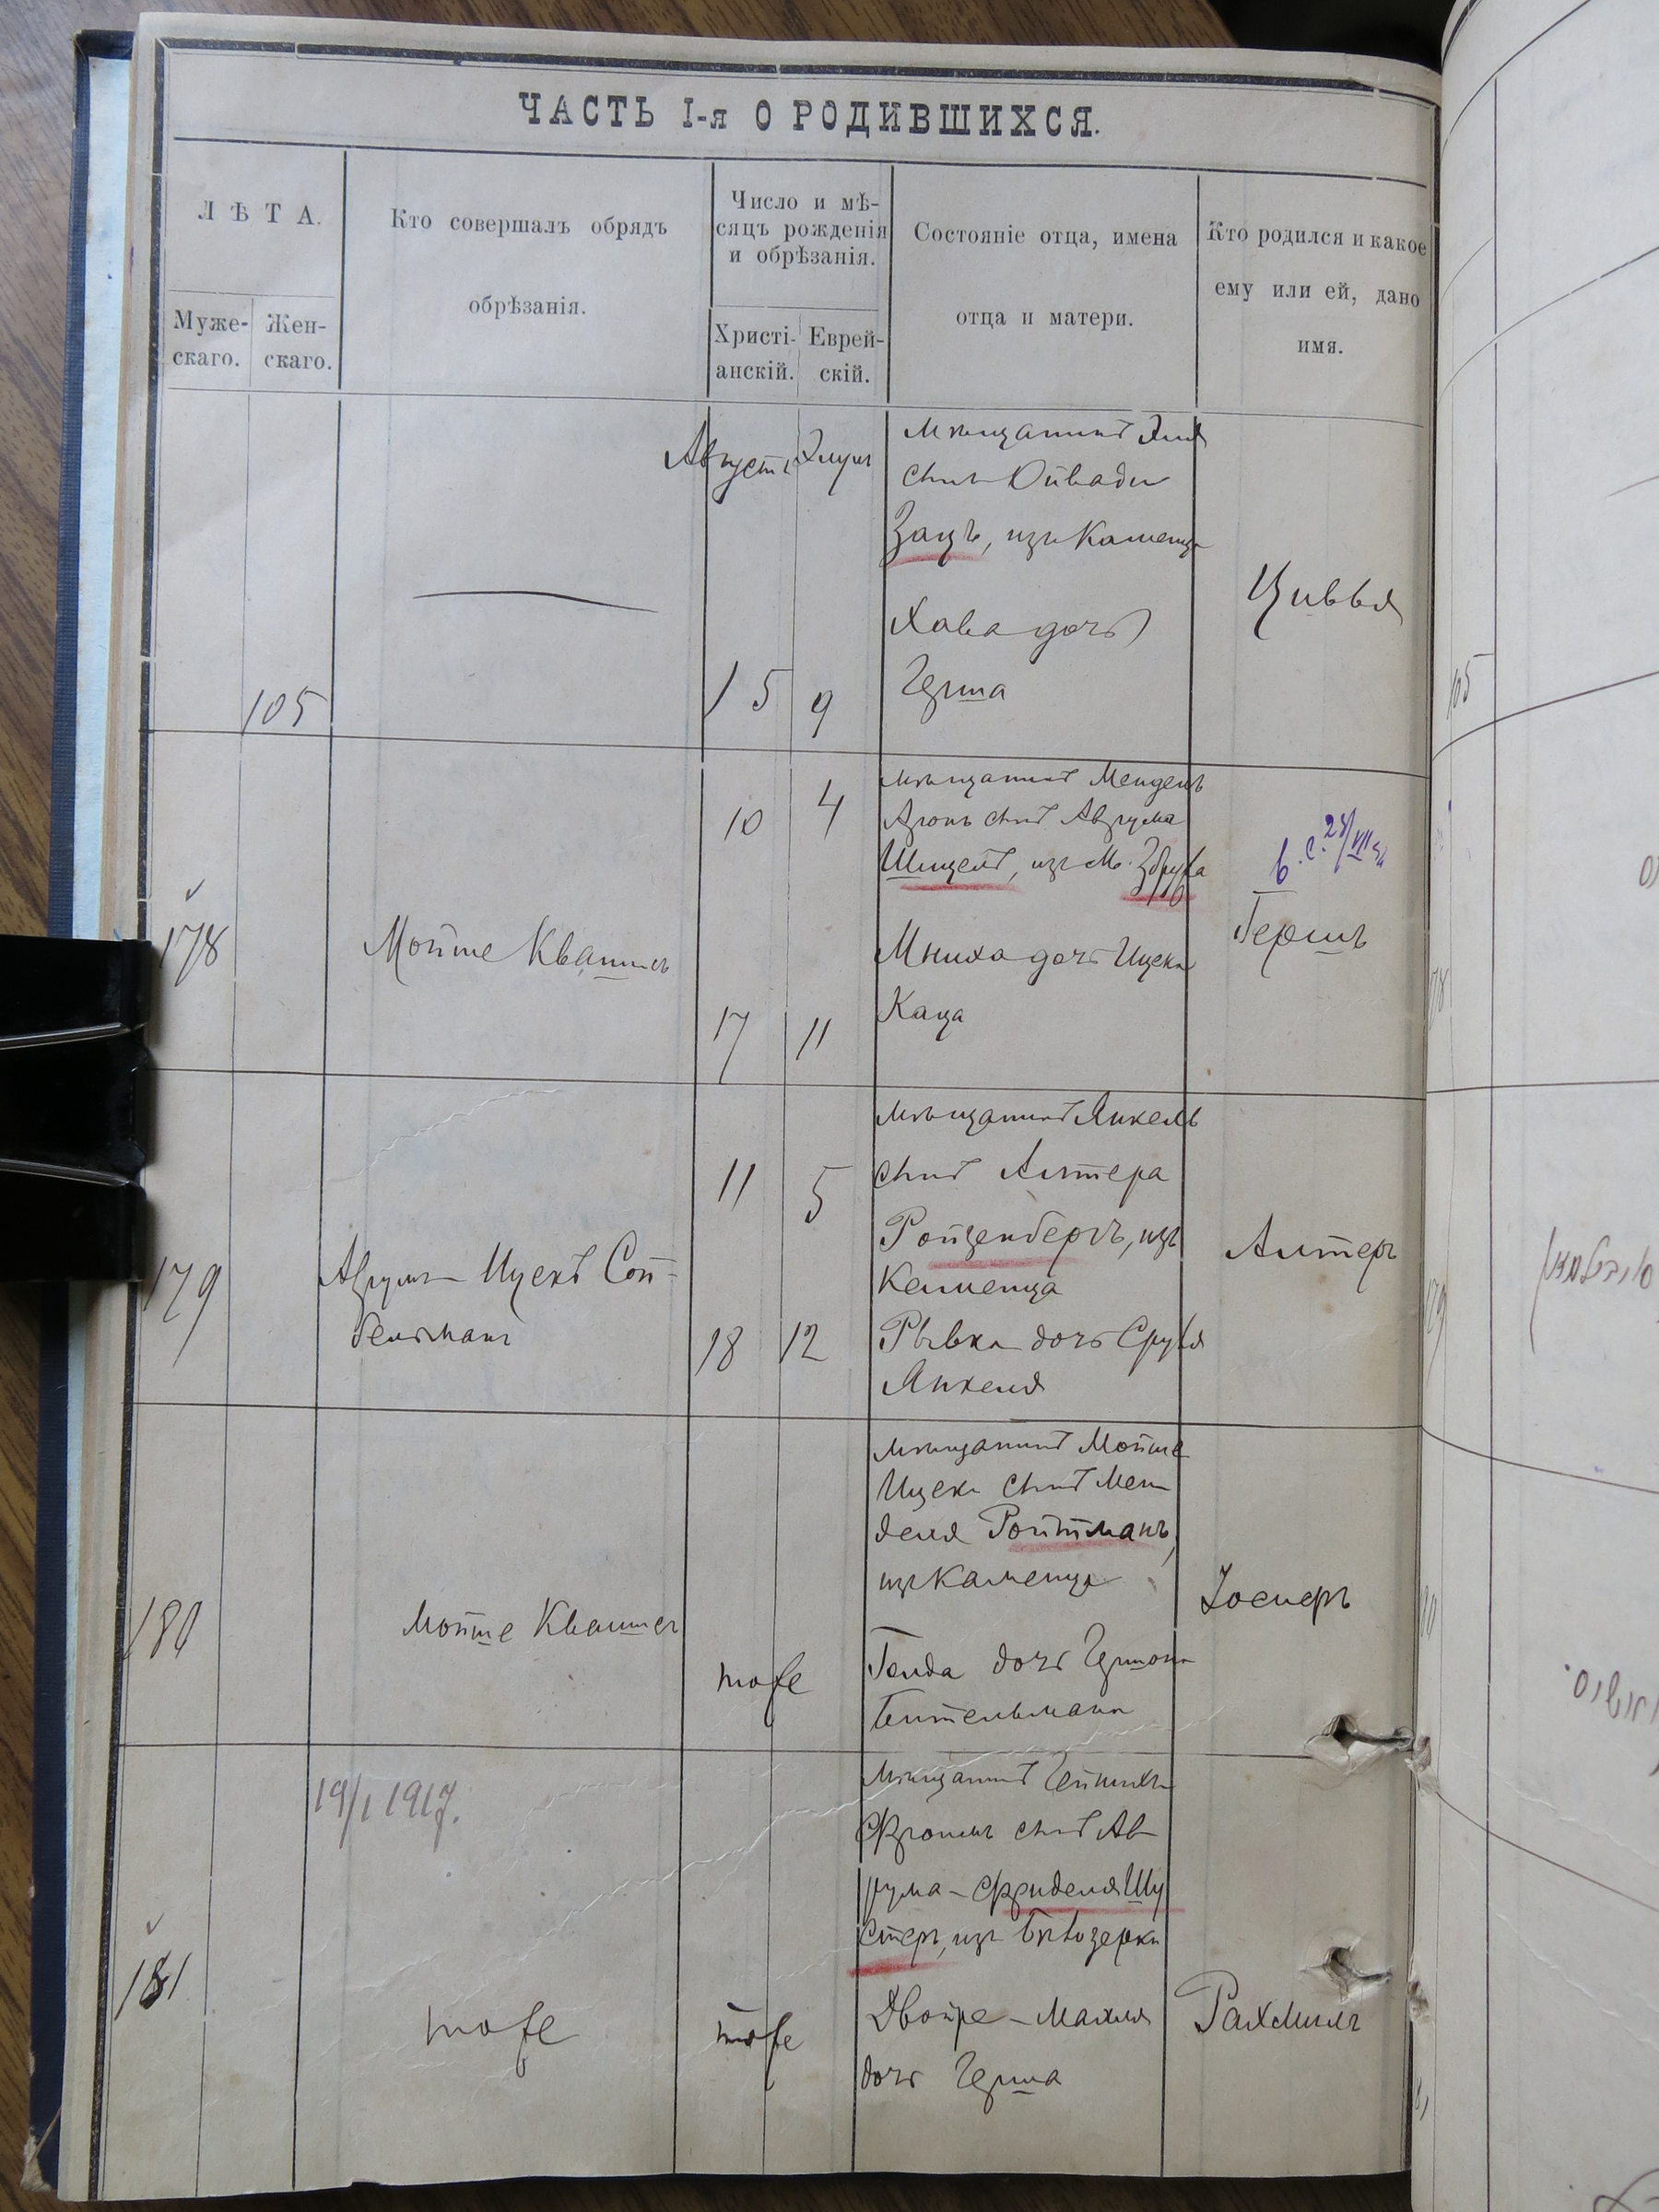 ЧАСТЬ I-я О РОДИВШИХСЯ.
ЛѢТА.
Муже-
скаго.
Жен-
скаго.
Кто совершалъ обрядъ
обрѣзанія.
Число и мѣ-
сяцъ рожденія
и обрѣзанія.
Христі-
анскій.
Еврей-
скій.
Состояніе отца, имена
отца и матери.
Кто родился и какое
ему или ей, дано
имя.
105
Августъ
Элулъ
15
9
мѣщанинъ
сынъ
Зацъ, изъ Каменца
Хава дочь
Герша
Цивья
178
Мойше Квашнеъ
10
4
17
11
мѣщанинъ Мендель
Аронъ сынъ Аврума
изъ м. Збружа
дочь Ицека
Каца
Гершъ
179
Аврумъ-Ицекъ Сой-
бельманъ
11
5
18
12
мѣщанинъ Янкель
сынъ Алтера
Ройзенбергъ, изъ
Каменца
Рывка дочь Сруля
Янкеля
Алтеръ
180
Мойше
тоже
мѣщанинъ Мойше
Ицекъ сынъ Мен
деля Ройтманъ,
изъ Каменца
Голда дочь Гершона
Бительмана
Іосифъ
19/I 1917.
181
тоже
тоже
мѣщанинъ
Фроимъ сынъ Ав
рума-Фриделя Шу
стеръ, изъ Бѣлозерки
Двойре-Малля
дочь Герша
Рахмилъ
105